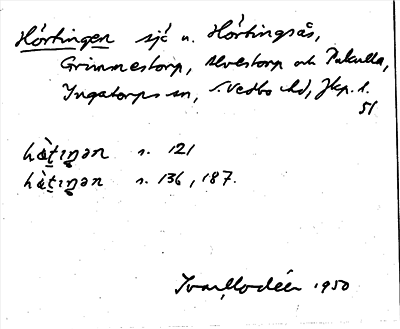 Hörtingen sjö n. Hörtingsås,
Grimmestorp, Alvestorp och Pukulla,
Ingatorps sn, S. Vedbo hd, Jkp. l.
51
s. 121
s. 136, 187.
Ivar Modéer 1950